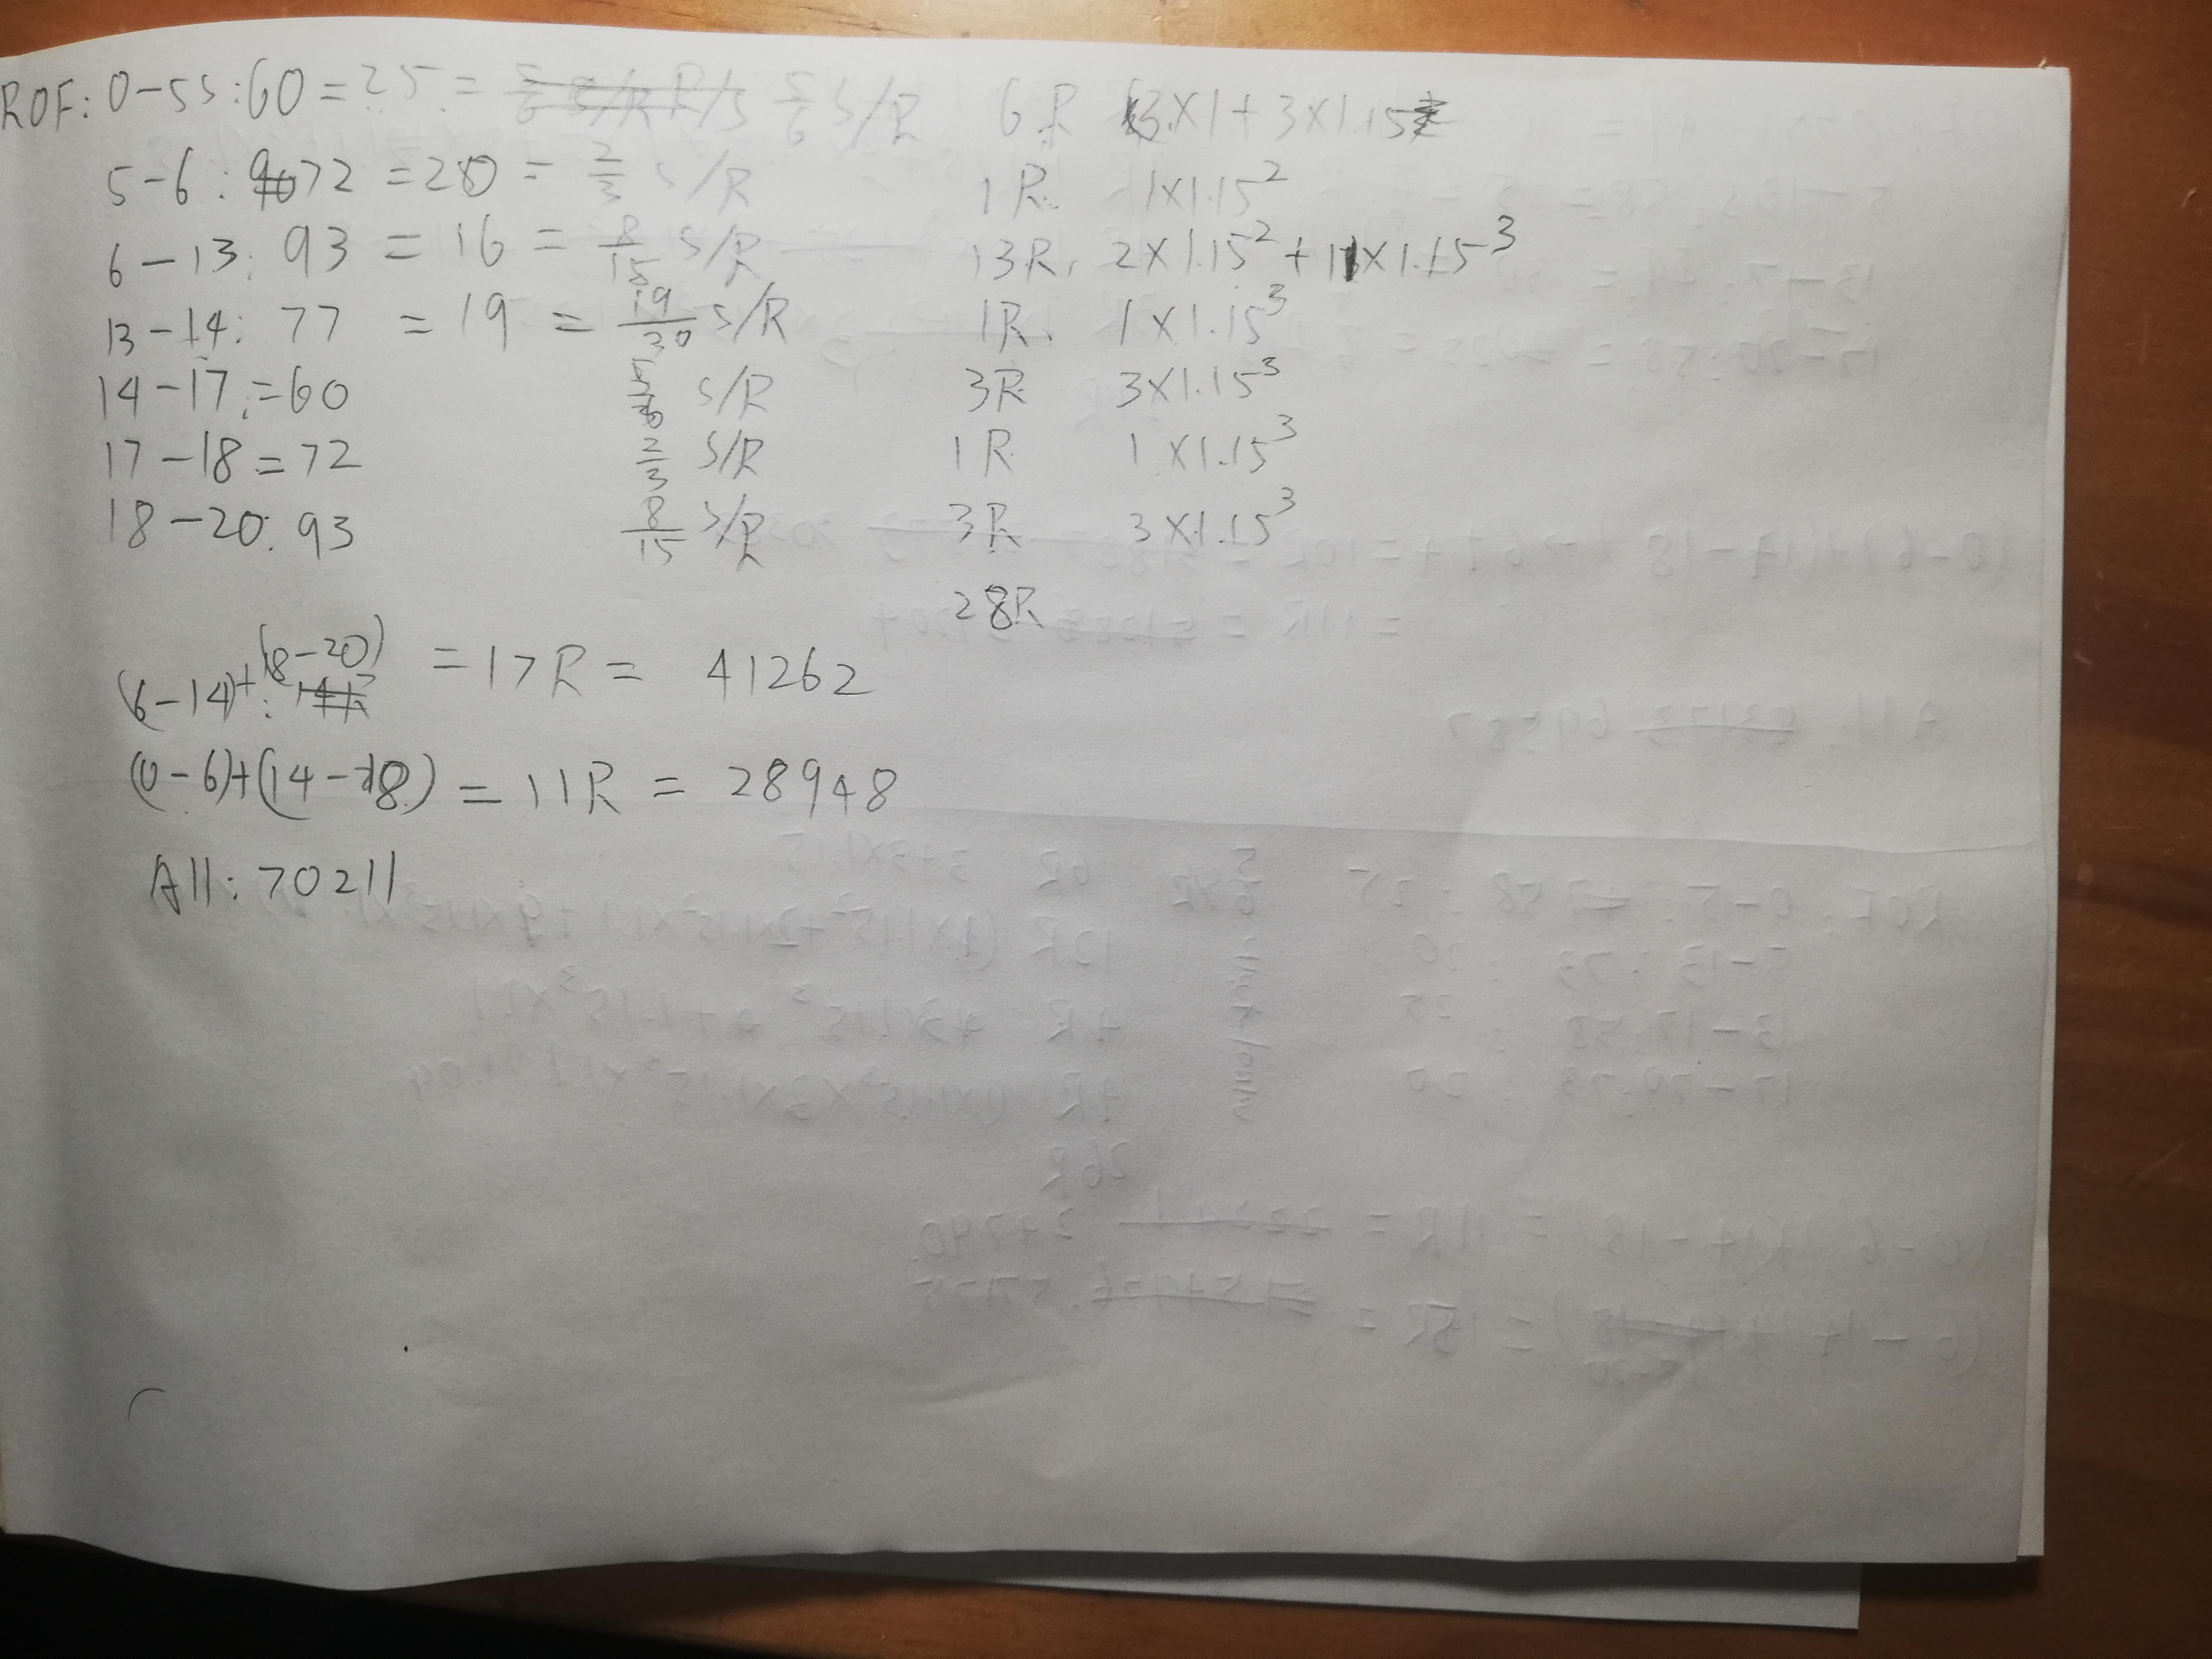 ROF: 0-5s:60 = 25 = 5/6 s/R 6R 3×1+3×1.15
5-6: 72 = 20 = 2/3 s/R 1R. 1×1.15²
6-13: 93 = 16 = 8/15 s/R 13R, 2×1.15²+11×1.15³
13-14: 77 = 19 = 19/30 s/R 1R. 1×1.15³
14-17:=60 5/6 s/R 3R 3×1.15³
17-18=72 2/3 s/R 1R 1×1.15³
18-20: 93 8/15 s/R 3R 3×1.15³
28R
(6-14)+(18-20) = 17R = 41262
(0-6)+(14-18) = 11R = 28948
All: 70211